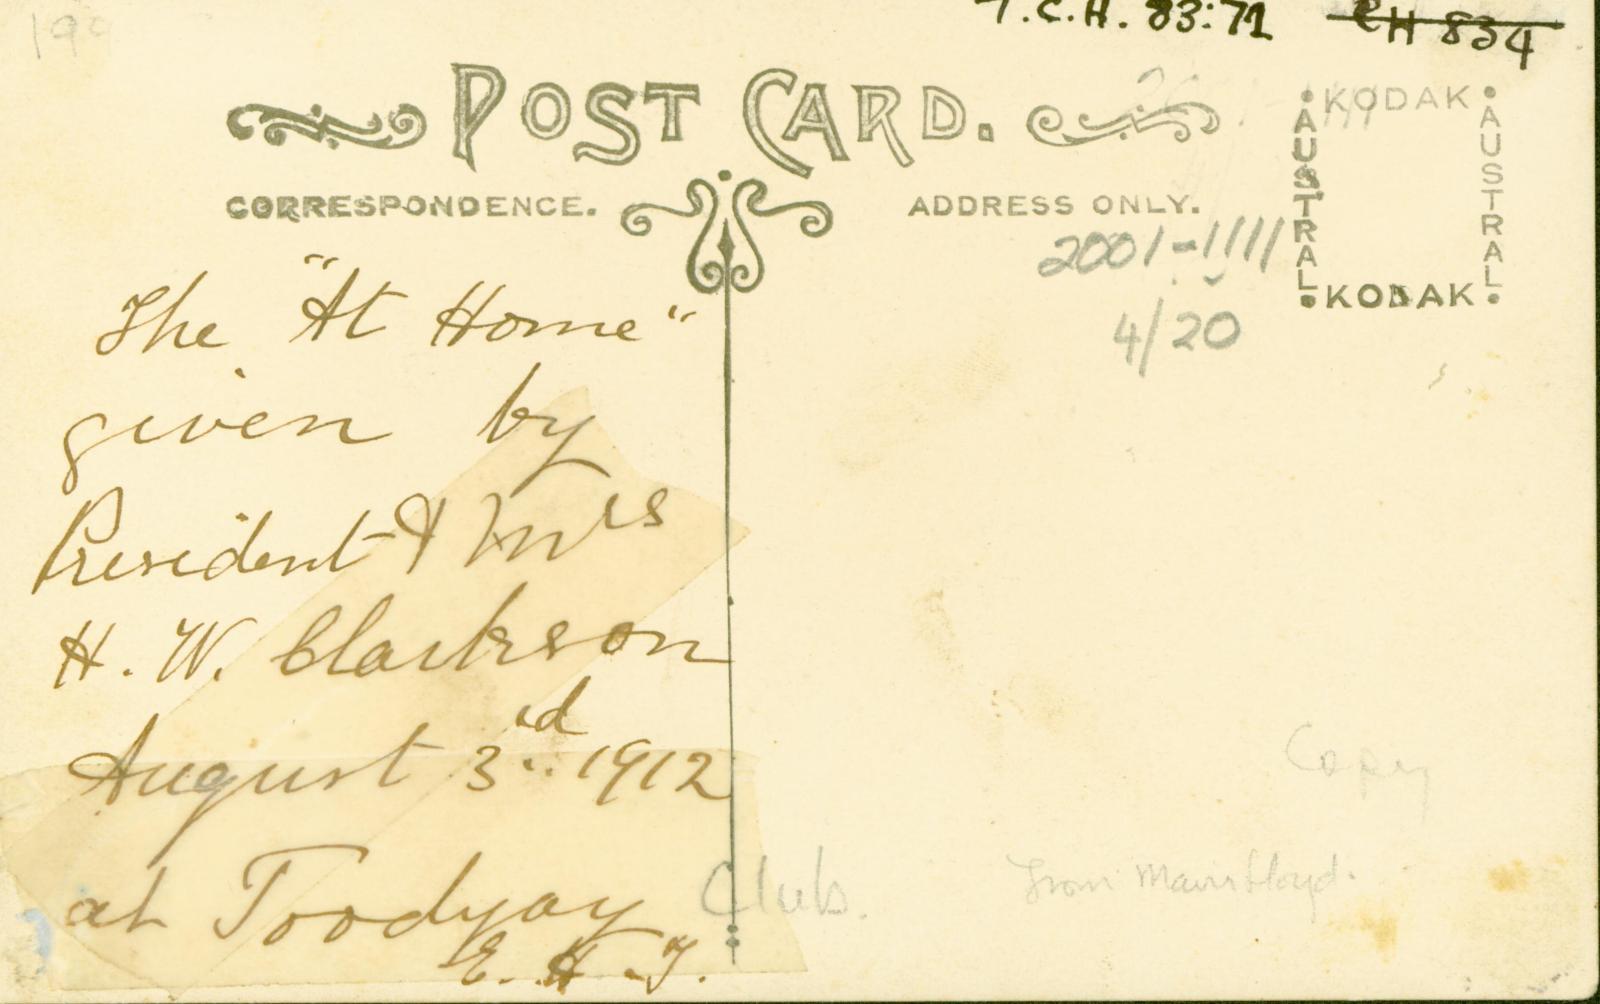 T.C.H. 83:71 CH 834
POST CARD.
CORRESPONDENCE.
ADDRESS ONLY.
KODAK
AUSTRAL
AUSTRAL
KODAK
2001-1111
4/20
The "At Home"
given by
President & Mrs
H. W. Clarkson
August 3rd 1912
at Toodyay Club.
E. H. T.
Copy
From Lloyd.